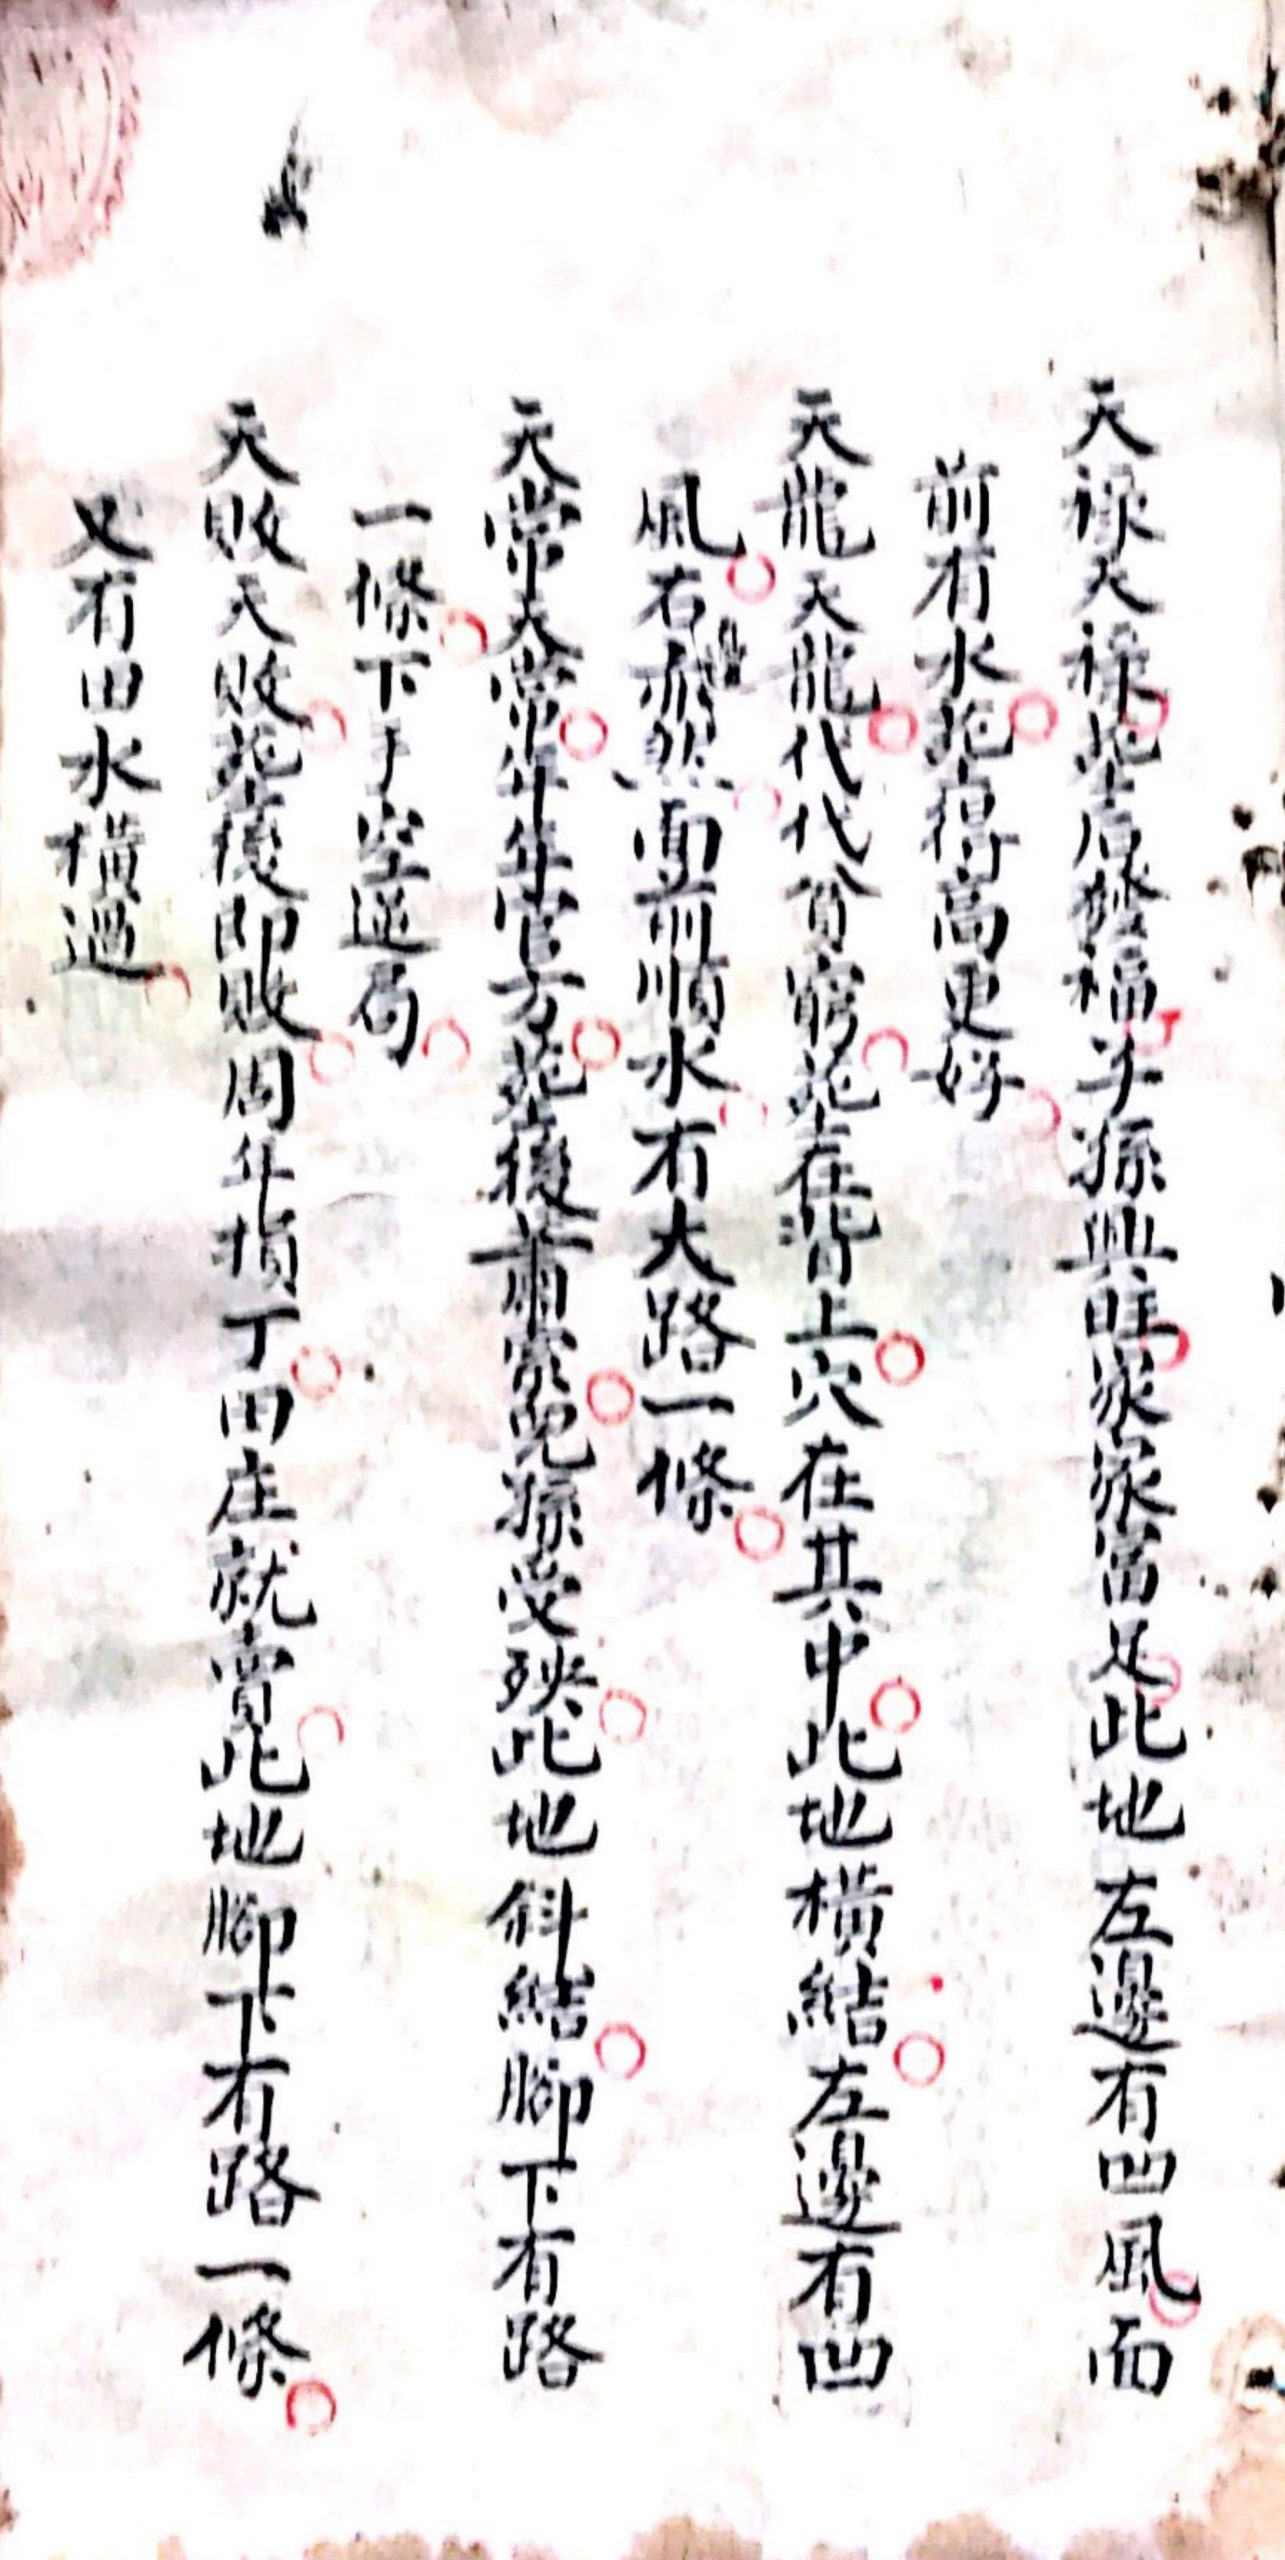 天祿天祿塟后發福子孫興旺家家富足此地左邊有凹風面
前有水塟得高更好
天龍天龍代代貧窮塟在背上穴在其中此地橫結左邊有凹
風右亦然面前順水有大路一條
天常天常年年官方塟後蕭索兒孫受殃此地斜結腳下有路
一條下于空逆局
天敗天敗塟後即敗周年損丁田庄就賣此地腳下有路一條
又有田水橫過